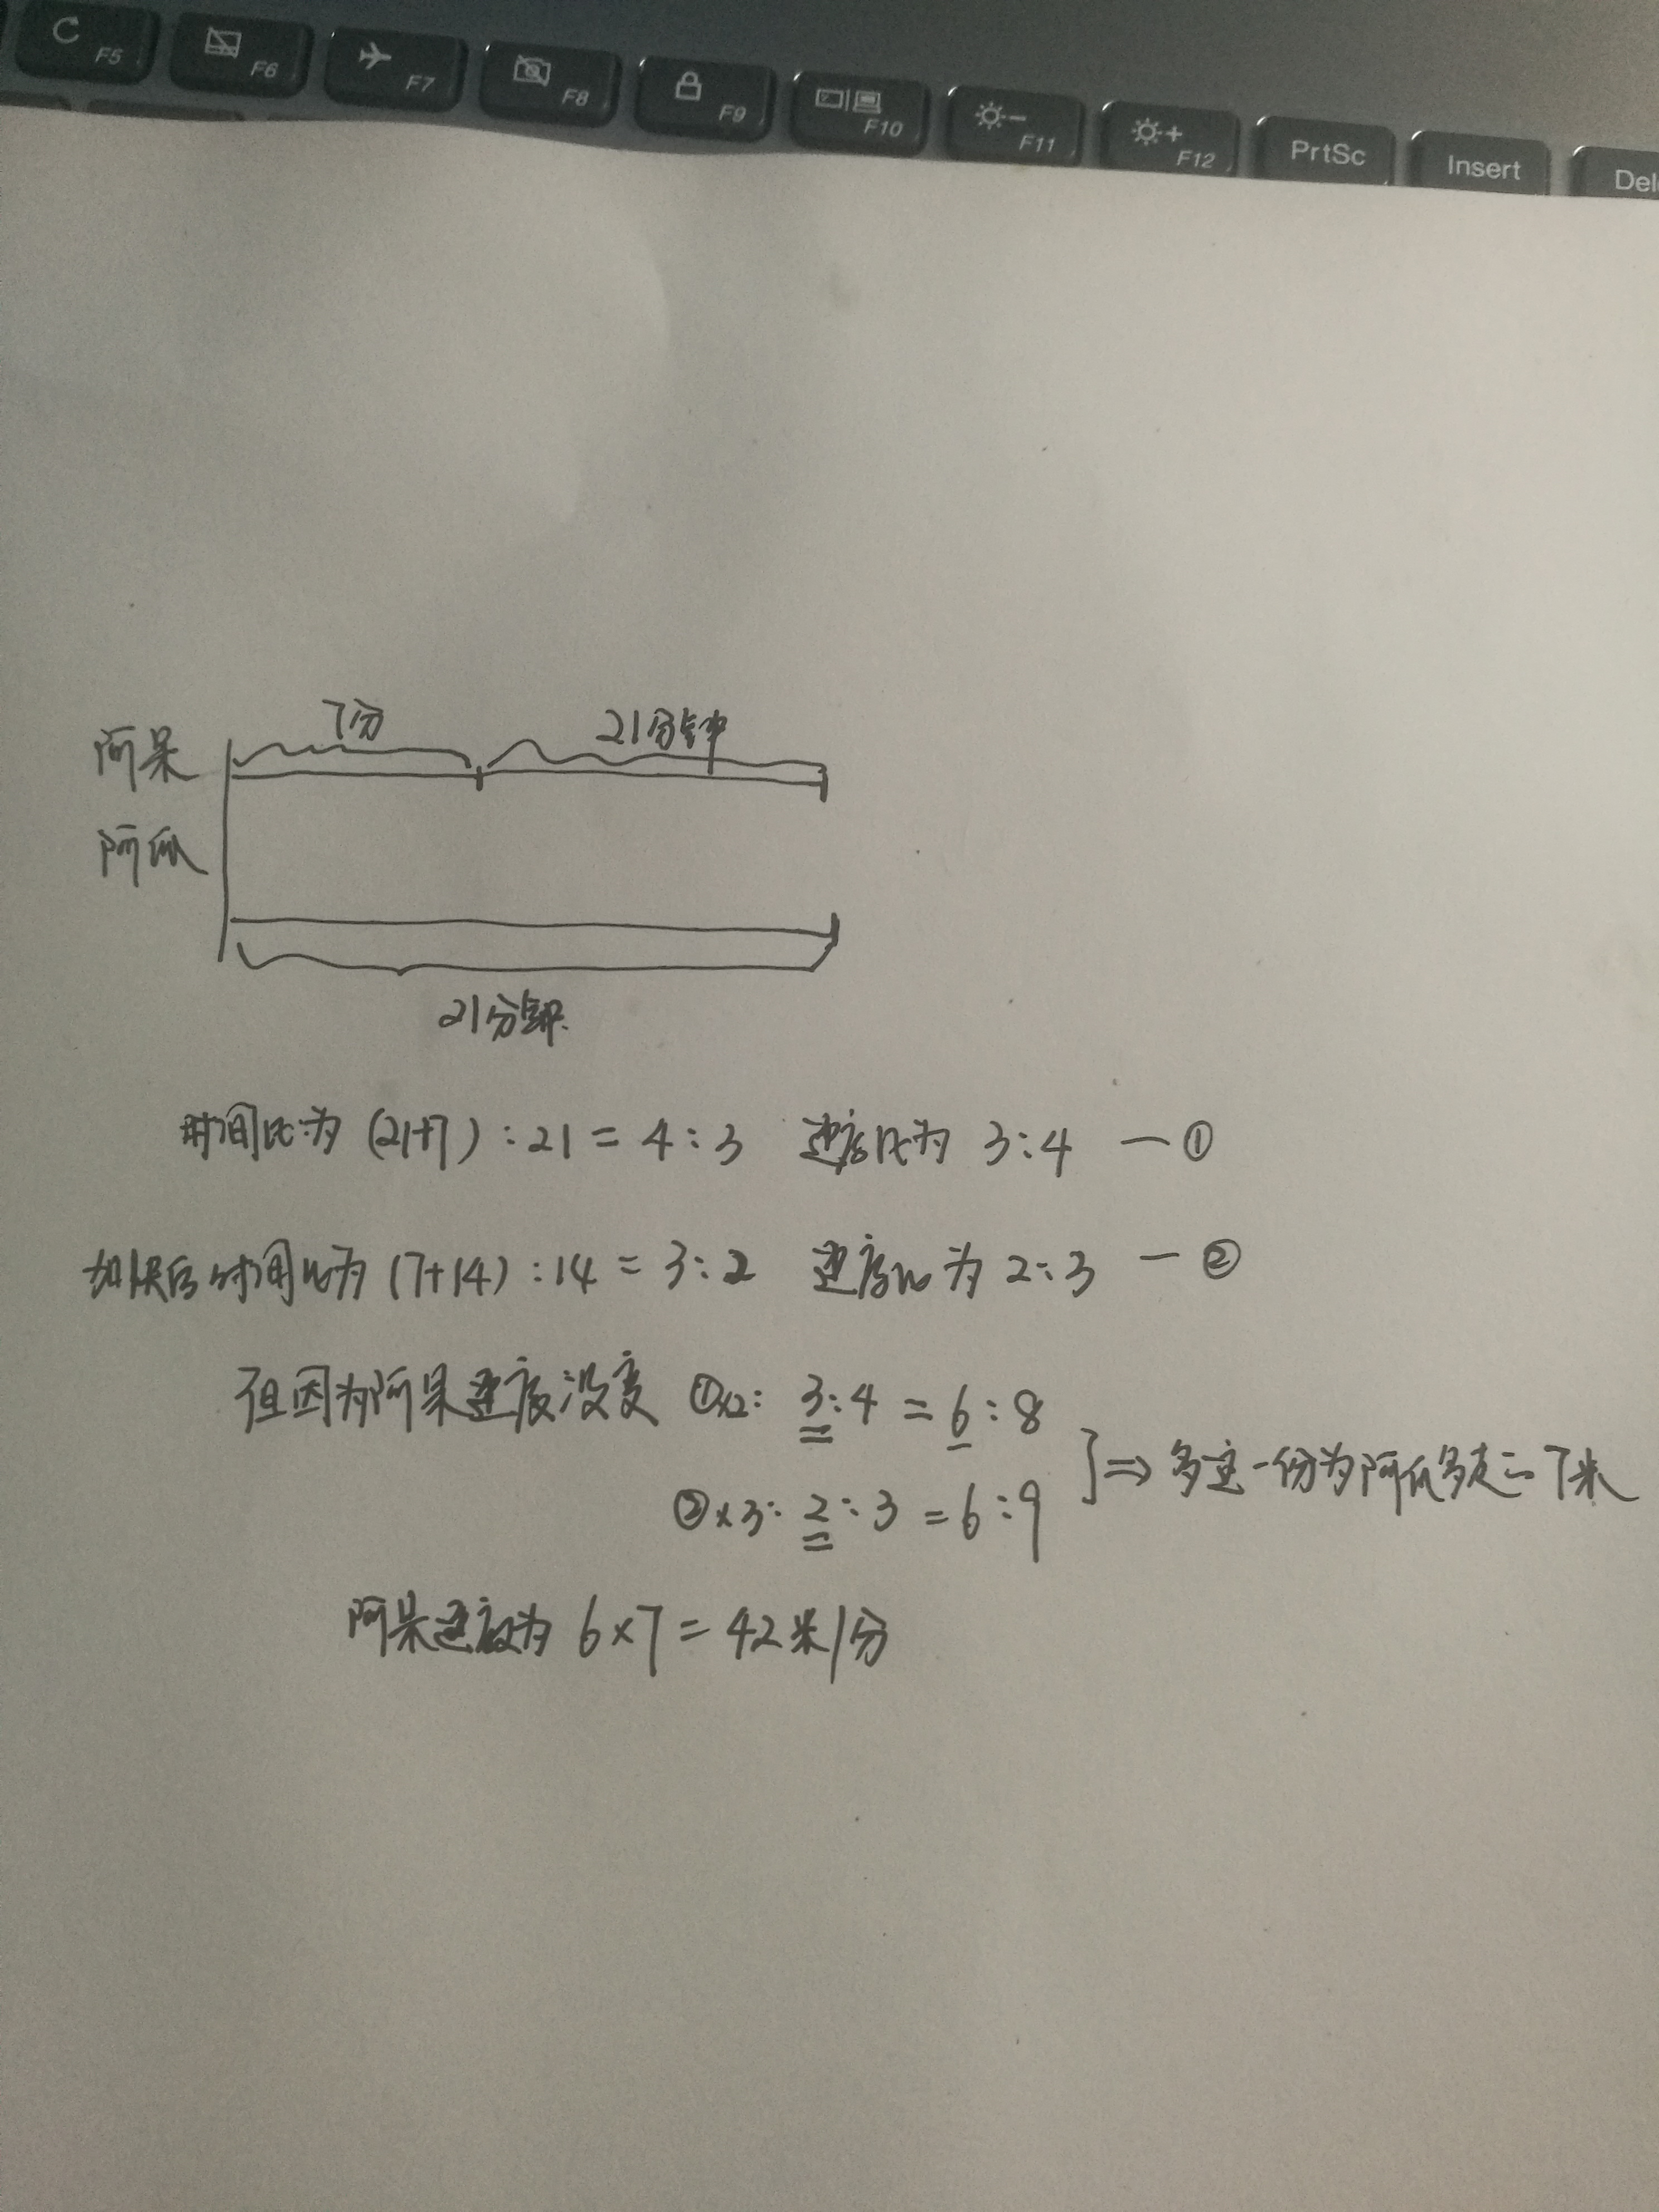 F5 F6 F7 F8 F9 F10 F11 F12 PrtSc Insert Del
7分 21分钟
阿呆
阿瓜
21分钟
时间比为 (21+7) : 21 = 4 : 3 速度比为 3:4 — ①
加快后时间比为 (7+14) : 14 = 3 : 2 速度比为 2:3 — ②
但因为阿呆速度没变 ①×2: 3:4 = 6:8
②×3: 2:3 = 6:9
⇒ 多走一份为阿瓜多走的7米
阿呆速度为 6×7=42米/分